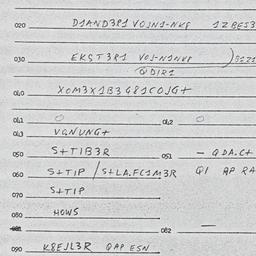 020 D1AND3R1 VOJN1-NKF 1ZBEJ3
030 EKST3R1 VOJ-N1NKF
QDIR1
040 XOM3X1B3 G81COJG+
041 O 042 O
043 VGNUNG+
050 S+T1B3R 051 - QDA.C+
060 S+T1P / S+LA.FC1M3R Q1 AP RA
070 S+T1P
080 HOWS
082 —
090 K8EJL3R QAP ESN